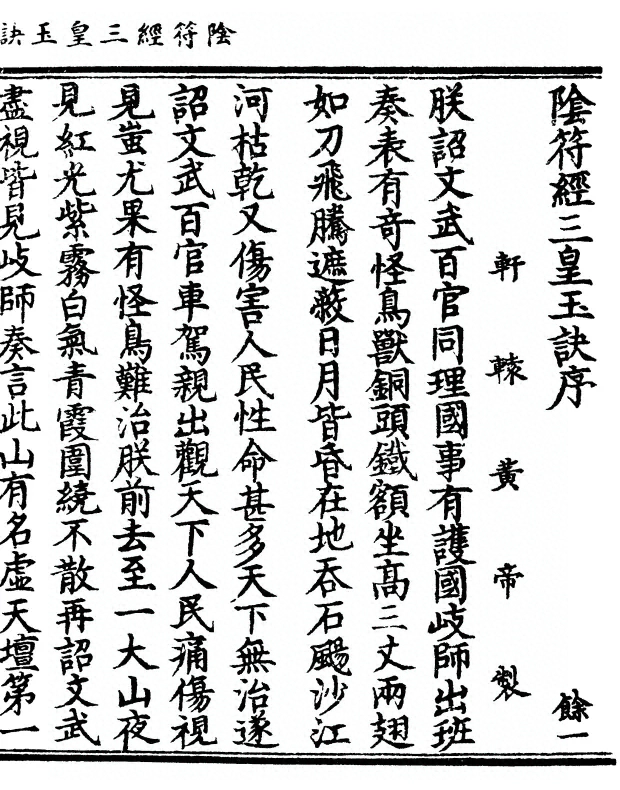 陰符經三皇玉訣
陰符經三皇玉訣序
餘一
軒轅黃帝製
朕詔文武百官同理國事有護國岐師出班
奏表有奇怪鳥獸銅頭鐵額坐高三丈兩翅
如刀飛騰遮蔽日月皆昏在地吞石颺沙江
河枯乾又傷害人民性命甚多天下無治遂
詔文武百官車駕親出觀天下人民痛傷視
見蚩尤果有怪鳥難治朕前去至一大山夜
見紅光紫霧白氣青霞圍繞不散再詔文武
盡視皆見岐師奏言此山有名虛天壇第一